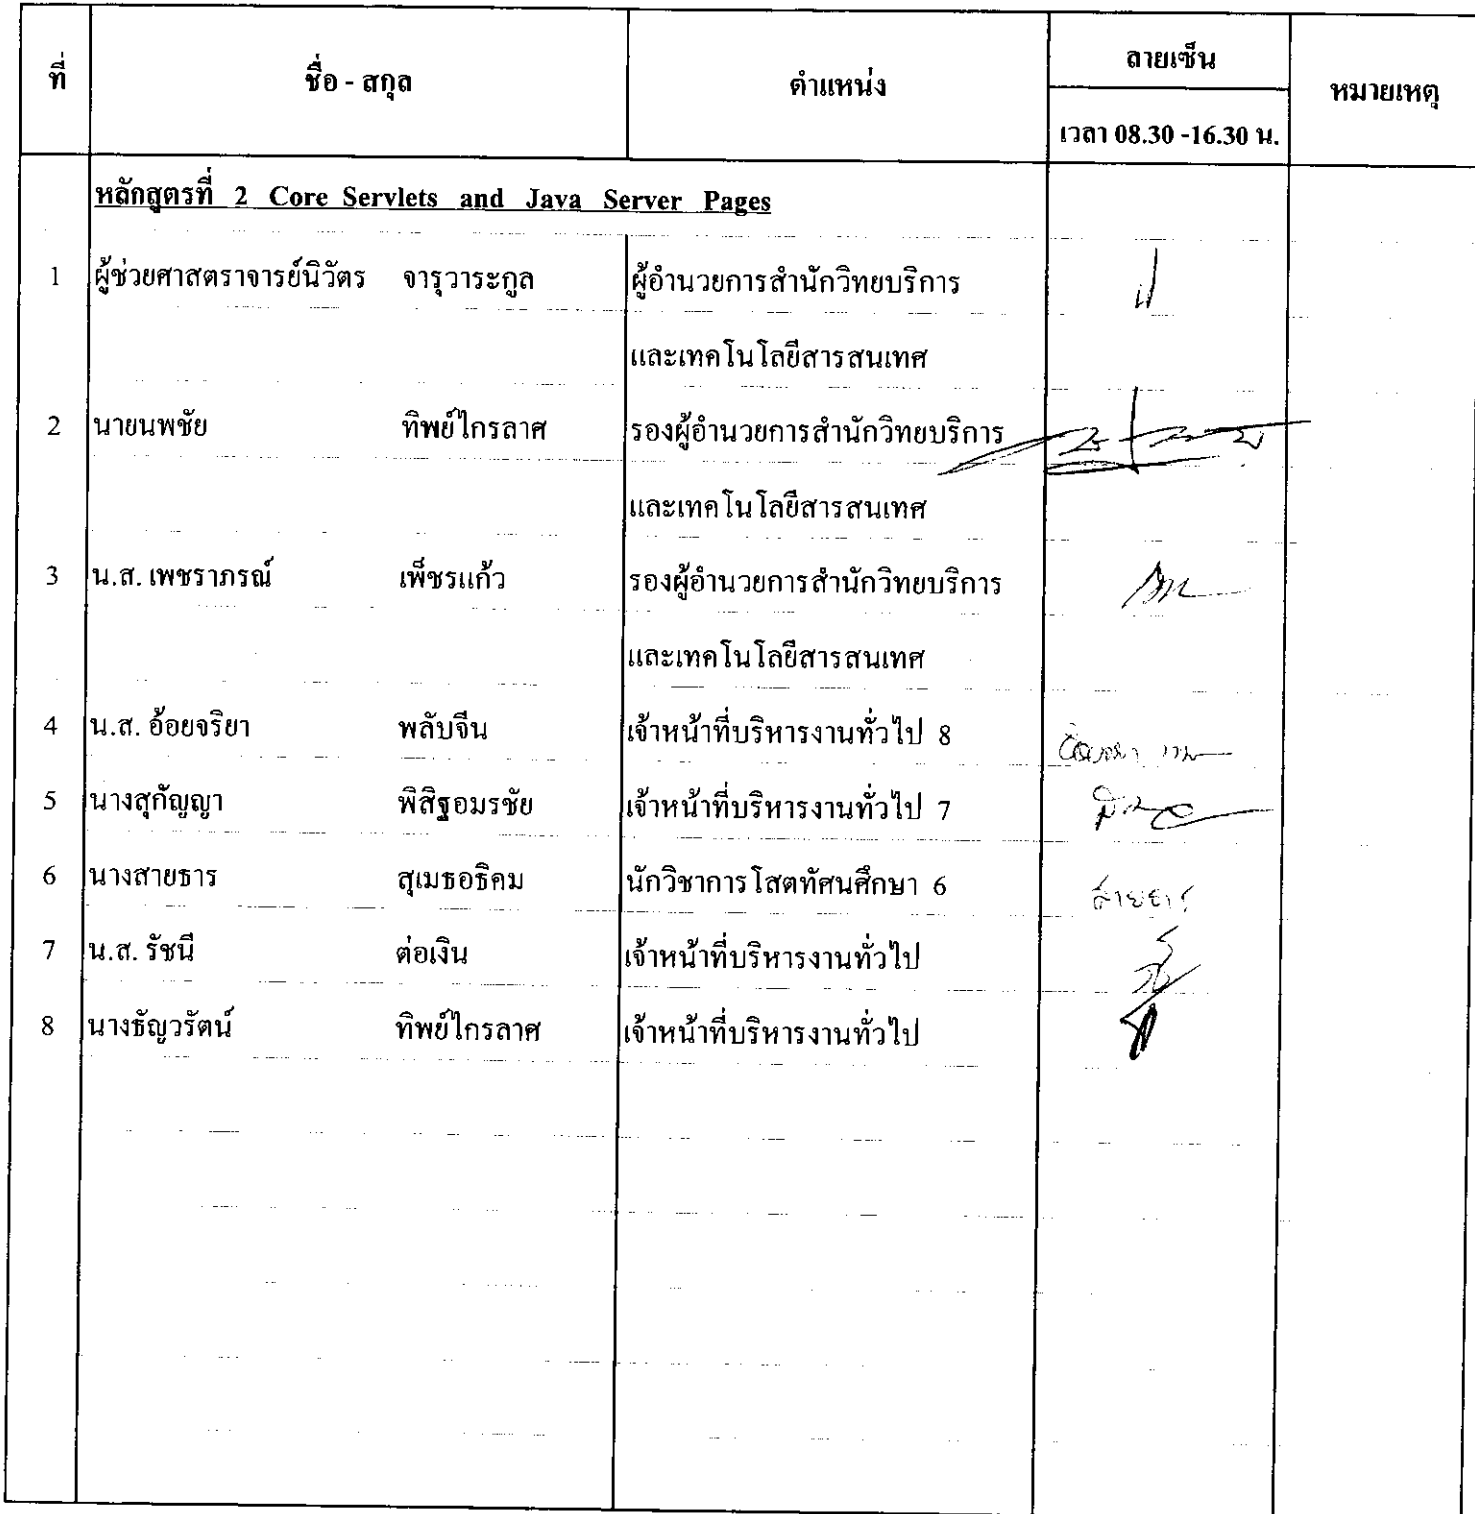 ที่ ชื่อ - สกุล ตำแหน่ง ลายเซ็น หมายเหตุ
เวลา 08.30 -16.30 น.
หลักสูตรที่ 2 Core Servlets and Java Server Pages
1 ผู้ช่วยศาสตราจารย์นิวัตร จารุวาระกูล ผู้อำนวยการสำนักวิทยบริการ
และเทคโนโลยีสารสนเทศ
2 นายนพชัย ทิพย์ไกรลาศ รองผู้อำนวยการสำนักวิทยบริการ
และเทคโนโลยีสารสนเทศ
3 น.ส. เพชราภรณ์ เพ็ชรแก้ว รองผู้อำนวยการสำนักวิทยบริการ
และเทคโนโลยีสารสนเทศ
4 น.ส. อ้อยจริยา พลับจีน เจ้าหน้าที่บริหารงานทั่วไป 8
5 นางสุกัญญา พิสิฐอมรชัย เจ้าหน้าที่บริหารงานทั่วไป 7
6 นางสายธาร สุเมธอธิคม นักวิชาการโสตทัศนศึกษา 6 สายธาร
7 น.ส. รัชนี ต่อเงิน เจ้าหน้าที่บริหารงานทั่วไป
8 นางธัญวรัตน์ ทิพย์ไกรลาศ เจ้าหน้าที่บริหารงานทั่วไป